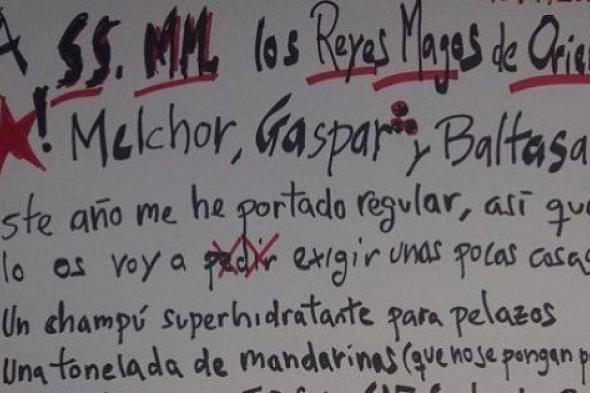 A SS. MM. los Reyes Magos de Orien
! Melchor, Gaspar y Baltasa
ste año me he portado regular, así que
lo os voy a pedir exigir unas pocas cosas
Un champú superhidratante para pelazos
Una tonelada de mandarinas (que no se pongan p